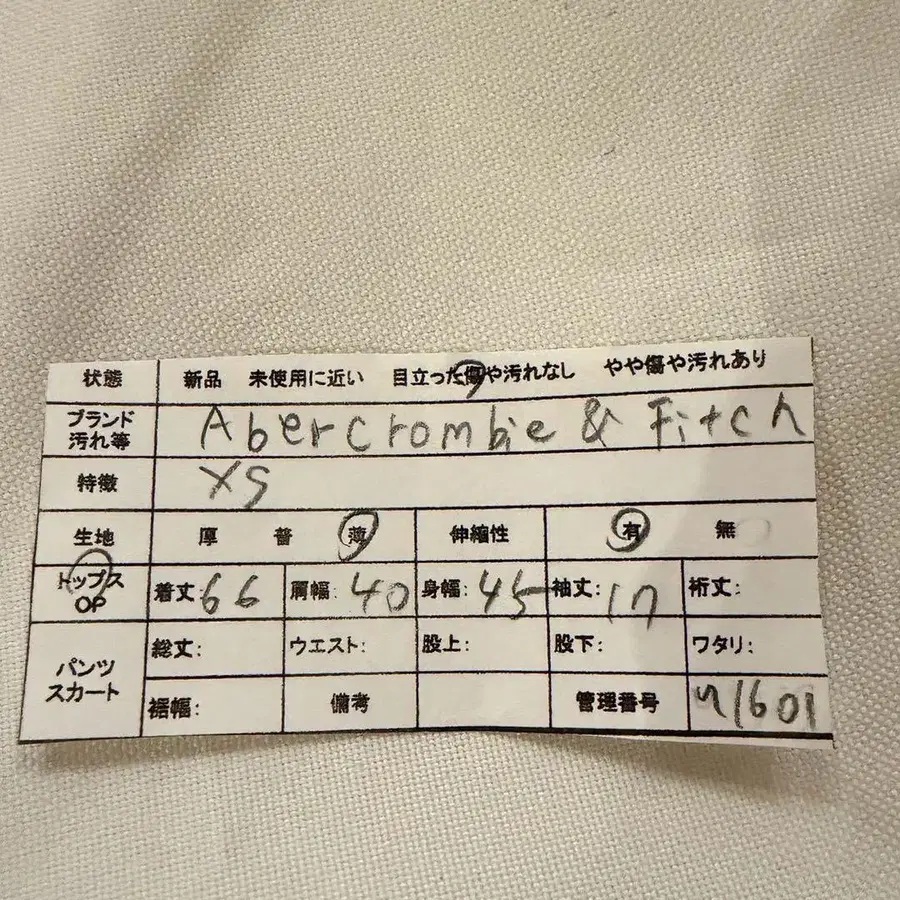 状態 新品 未使用に近い 目立った傷や汚れなし やや傷や汚れあり
ブランド
汚れ等 Abercrombie & Fitch
特徴 XS
生地 厚 普 薄 伸縮性 有 無
トップス
OP 着丈:66 肩幅:40 身幅:45 袖丈:17 裄丈:
パンツ
スカート 総丈: ウエスト: 股上: 股下: ワタリ:
裾幅: 備考 管理番号 71601